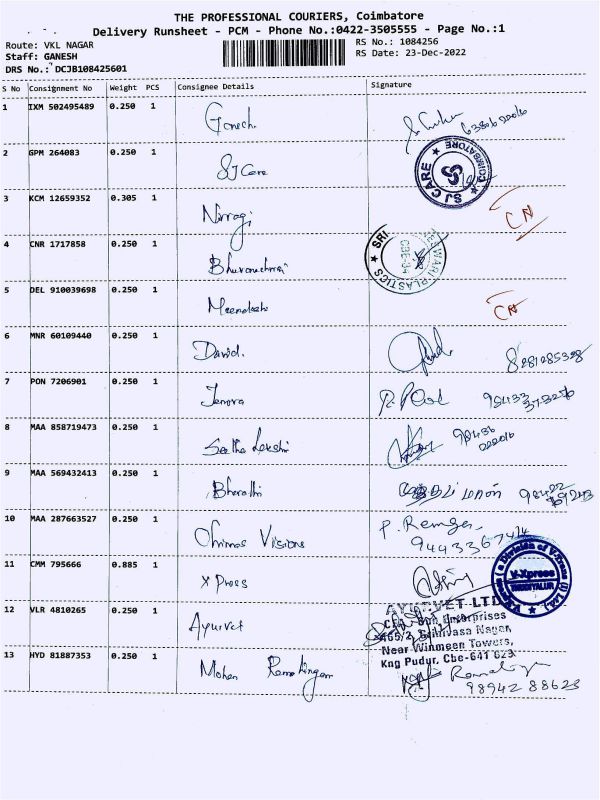 THE PROFESSIONAL COURIERS, Coimbatore
Delivery Runsheet - PCM - Phone No.:0422-3505555 - Page No.:1
Route: VKL NAGAR
Staff: GANESH
DRS No.: DCJB108425601
RS No.: 1084256
RS Date: 23-Dec-2022
S No Consignment No Weight PCS Consignee Details Signature
1 IXM 502495489 0.250 1 Ganesh
2 GPM 264083 0.250 1 SJ Care
SJ CARE COIMBATORE
3 KCM 12659352 0.305 1 CN
4 CNR 1717858 0.250 1
SRI PLASTICS CBE-34
5 DEL 910039698 0.250 1 Meenakshi CN
6 MNR 60109440 0.250 1 David. 8281285328
7 PON 7206901 0.250 1 Jenova
8 MAA 858719473 0.250 1 Seetha Lakshi
9 MAA 569432413 0.250 1 Bharathi
10 MAA 287663527 0.250 1 Visions
9443367414
11 CMM 795666 0.885 1 X Press
V-Xpress (a Division of V-Trans (I) Ltd.)
12 VLR 4810265 0.250 1 Ayurvet
AYURVET LTD
Enterprises
465/2, Srinivasa Nagar,
Near Winmeen Towers,
Kng Pudur, Cbe-641 623.
13 HYD 81887353 0.250 1 Mohan Ramalingam
98942 88623